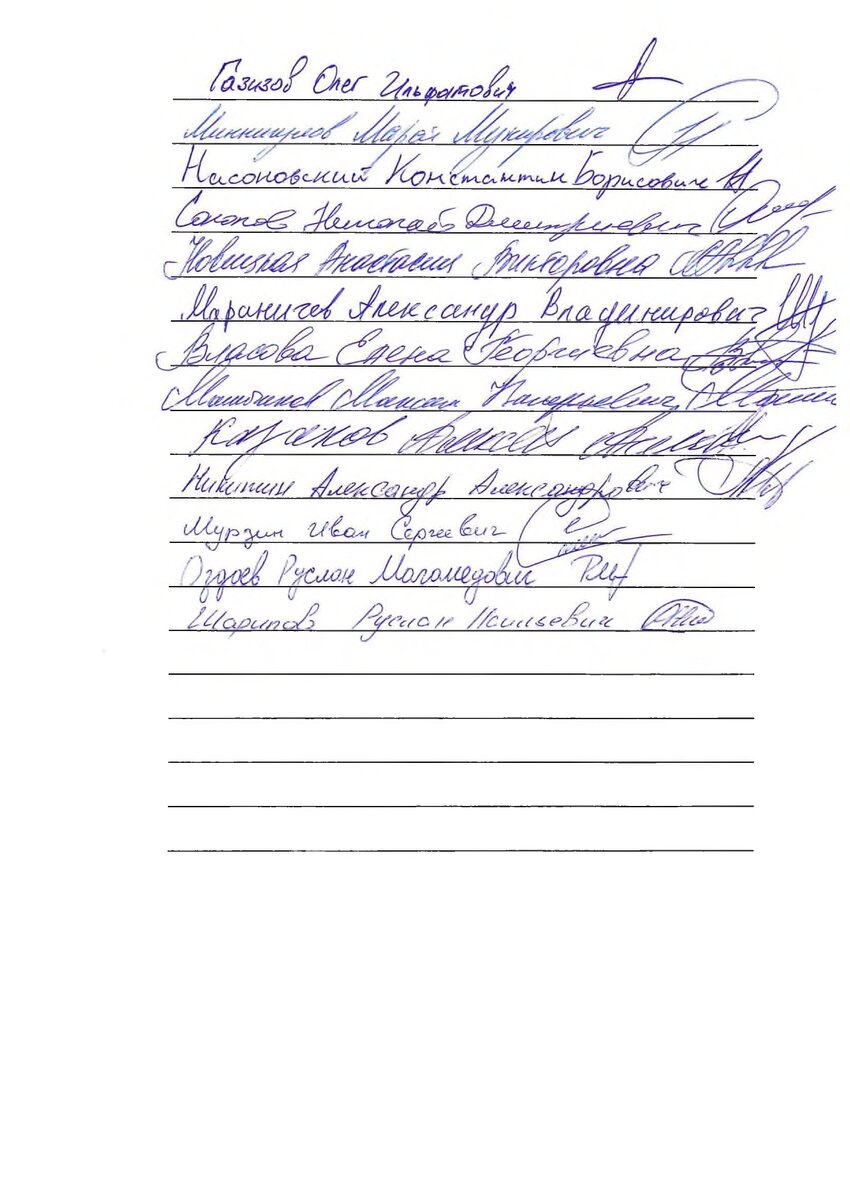 Газизов Олег Ильфатович
Миннигулов Марат Мунирович
Насоновский Константин Борисович
Соколов Николай Дмитриевич
Новицкая Анастасия Викторовна
Мараничев Александр Владимирович
Власова Елена Георгиевна
Максим
Казаков Алексей
Никитин Александр Александрович
Мурзин Иван Сергеевич
Оздоев Руслан Магомедович
Шарипов Руслан Наильевич